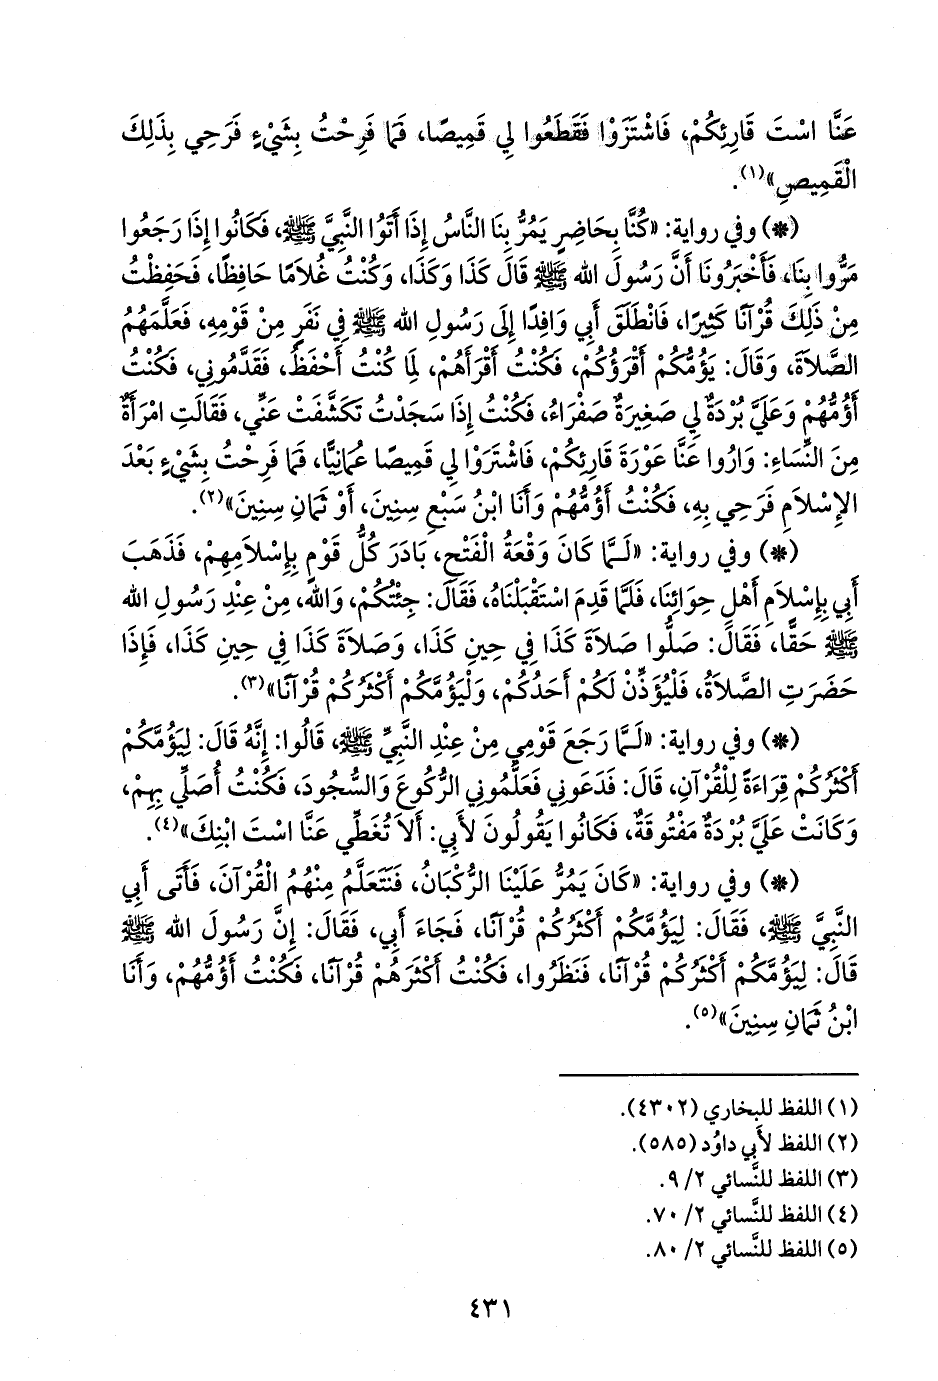 عَنَّا اسْتَ قَارِئِكُمْ، فَاشْتَرَوْا فَقَطَعُوا لِي قَمِيصًا، فَمَا فَرِحْتُ بِشَيْءٍ فَرَحِي بِذَلِكَ
الْقَمِيصِ»(١).
(*) وفي رواية: «كُنَّا بِحَاضِرٍ يَمُرُّ بِنَا النَّاسُ إِذَا أَتَوُا النَّبِيَّ ﷺ، فَكَانُوا إِذَا رَجَعُوا
مَرُّوا بِنَا، فَأَخْبَرُونَا أَنَّ رَسُولَ الله ﷺ قَالَ كَذَا وَكَذَا، وَكُنْتُ غُلاَمًا حَافِظًا، فَحَفِظْتُ
مِنْ ذَلِكَ قُرْآنًا كَثِيرًا، فَانْطَلَقَ أَبِي وَافِدًا إِلَى رَسُولِ الله ﷺ فِي نَفَرٍ مِنْ قَوْمِهِ، فَعَلَّمَهُمُ
الصَّلاَةَ، وَقَالَ: يَؤُمُّكُمْ أَقْرَؤُكُمْ، فَكُنْتُ أَقْرَأَهُمْ، لِمَا كُنْتُ أَحْفَظُ، فَقَدَّمُونِي، فَكُنْتُ
أَؤُمُّهُمْ وَعَلَيَّ بُرْدَةٌ لِي صَغِيرَةٌ صَفْرَاءُ، فَكُنْتُ إِذَا سَجَدْتُ تَكَشَّفَتْ عَنِّي، فَقَالَتِ امْرَأَةٌ
مِنَ النِّسَاءِ: وَارُوا عَنَّا عَوْرَةَ قَارِئِكُمْ، فَاشْتَرَوْا لِي قَمِيصًا عُمَانِيًّا، فَمَا فَرِحْتُ بِشَيْءٍ بَعْدَ
الإِسْلاَمِ فَرَحِي بِهِ، فَكُنْتُ أَؤُمُّهُمْ وَأَنَا ابْنُ سَبْعِ سِنِينَ، أَوْ ثَمَانِ سِنِينَ»(٢).
(*) وفي رواية: «لَمَّا كَانَ وَقْعَةُ الْفَتْحِ، بَادَرَ كُلُّ قَوْمٍ بِإِسْلاَمِهِمْ، فَذَهَبَ
أَبِي بِإِسْلاَمِ أَهْلِ حِوَائِنَا، فَلَمَّا قَدِمَ اسْتَقْبَلْنَاهُ، فَقَالَ: جِئْتُكُمْ، وَالله، مِنْ عِنْدِ رَسُولِ الله
ﷺ حَقًّا، فَقَالَ: صَلُّوا صَلاَةَ كَذَا فِي حِينِ كَذَا، وَصَلاَةَ كَذَا فِي حِينِ كَذَا، فَإِذَا
حَضَرَتِ الصَّلاَةُ، فَلْيُؤَذِّنْ لَكُمْ أَحَدُكُمْ، وَلْيَؤُمَّكُمْ أَكْثَرُكُمْ قُرْآنًا»(٣).
(*) وفي رواية: «لَمَّا رَجَعَ قَوْمِي مِنْ عِنْدِ النَّبِيِّ ﷺ، قَالُوا: إِنَّهُ قَالَ: لِيَؤُمَّكُمْ
أَكْثَرُكُمْ قِرَاءَةً لِلْقُرْآنِ، قَالَ: فَدَعَونِي فَعَلَّمُونِي الرُّكُوعَ وَالسُّجُودَ، فَكُنْتُ أُصَلِّي بِهِمْ،
وَكَانَتْ عَلَيَّ بُرْدَةٌ مَفْتُوقَةٌ، فَكَانُوا يَقُولُونَ لأَبِي: أَلاَ تُغَطِّي عَنَّا اسْتَ ابْنِكَ»(٤).
(*) وفي رواية: «كَانَ يَمُرُّ عَلَيْنَا الرُّكْبَانُ، فَنَتَعَلَّمُ مِنْهُمُ الْقُرْآنَ، فَأَتَى أَبِي
النَّبِيَّ ﷺ، فَقَالَ: لِيَؤُمَّكُمْ أَكْثَرُكُمْ قُرْآنًا، فَجَاءَ أَبِي، فَقَالَ: إِنَّ رَسُولَ الله ﷺ
قَالَ: لِيَؤُمَّكُمْ أَكْثَرُكُمْ قُرْآنًا، فَنَظَرُوا، فَكُنْتُ أَكْثَرَهُمْ قُرْآنًا، فَكُنْتُ أَؤُمُّهُمْ، وَأَنَا
ابْنُ ثَمَانِ سِنِينَ»(٥).
(١) اللفظ للبخاري (٤٣٠٢).
(٢) اللفظ لأَبي داوُد (٥٨٥).
(٣) اللفظ للنَّسائي ٢/ ٩.
(٤) اللفظ للنَّسائي ٢/ ٧٠.
(٥) اللفظ للنَّسائي ٢/ ٨٠.
٤٣١